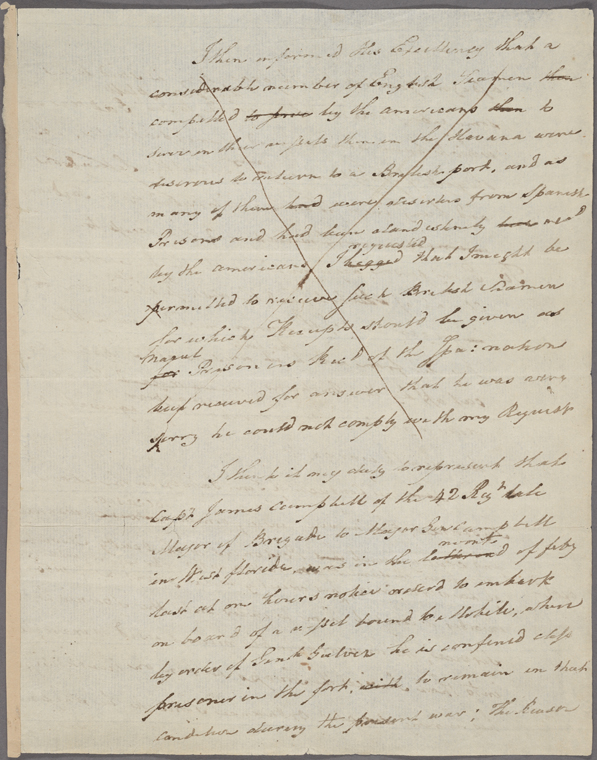 I then informed His Excellency that a
considerable number of English Seamen then
compelled to serve by the americans then to
serve on their vessels then in the Havana were
desirous to return to a British port, and as
many of them had were deserters from Spanish
Prisons and had been clandestinely
by the americans, I begged requested that I might be
permitted to receive such British Seamen
for which Receipts should be given as
for Prisoners Rec'd of the Spa: nation
but received for answer that he was very
sorry he could not comply with my Request
I think it my duty to represent that
Capt. James Campbell of the 42 Regt late
Major of Brigade to Major Gen Campbell
in West florida, was in the month of feby
last at one hours notice order'd to embark
on board of a vessel bound to Mobile, where
by order of Genl Galvez he is confined close
prisoner in the fort, to remain in that
condition during the present war; The Reason